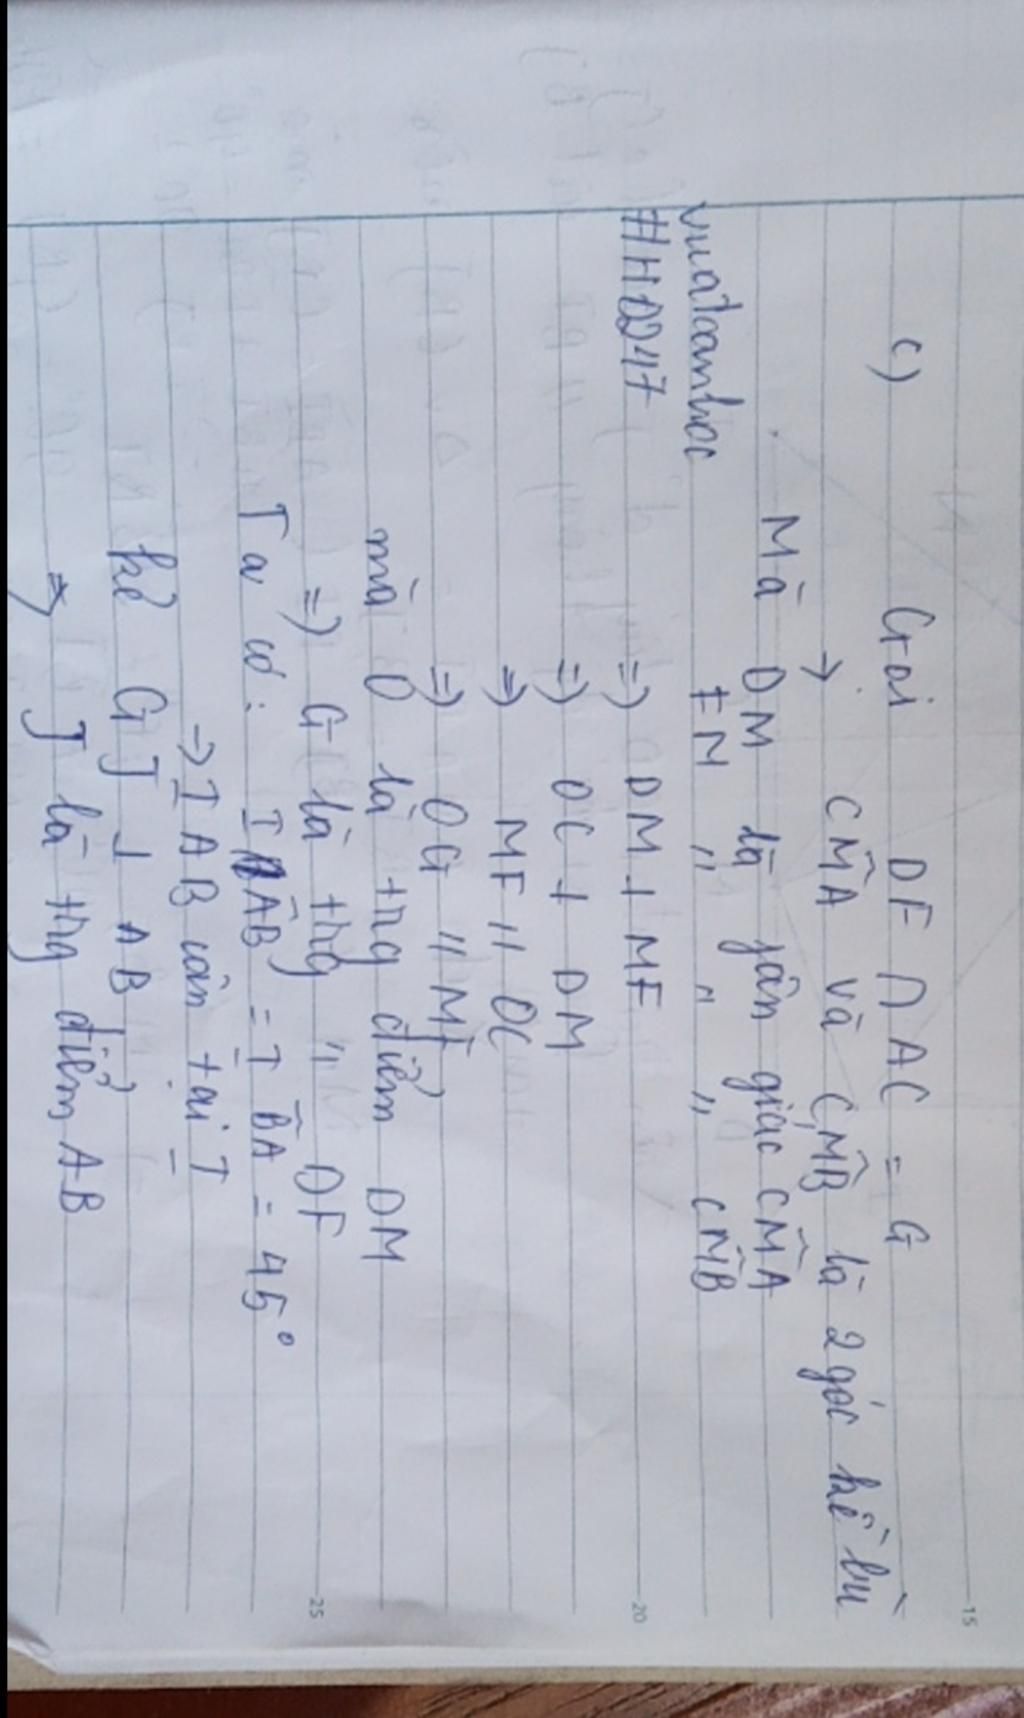 c) Gọi DF ∩ AC = G
→ CM̂A và CM̂B là 2 góc kề bù
Mà DM là fân giác CM̂A
vuatoanhoc FM " " " CM̂B
#HD247 ⇒ DM ⊥ MF
⇒ OC ⊥ DM
⇒ MF // OC
⇒ OG // MF
mà O là trg điểm DM
⇒ G là trg " DF
Ta có: IÂB = IB̂A = 45°
→ IAB cân tại I
kẻ GJ ⊥ AB
⇒ J là trg điểm AB
15
20
25